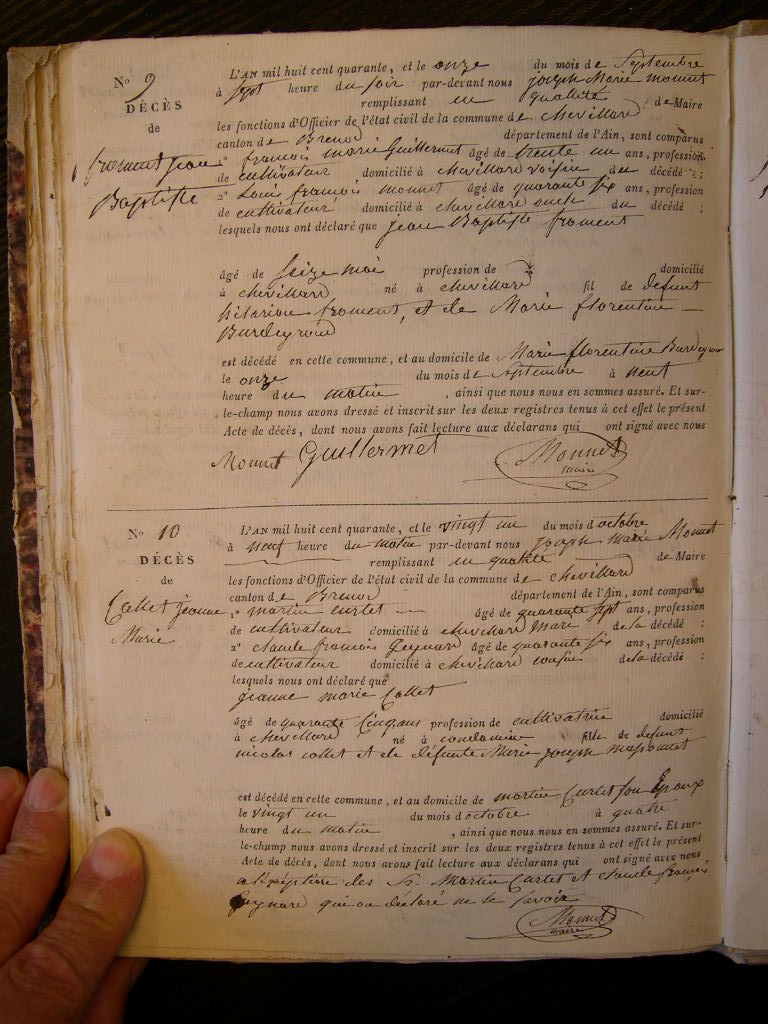 No 9
DÉCÈS
de
froment jean
Baptiste
L'AN mil huit cent quarante, et le onze du mois de Septembre
à sept heure du soir par-devant nous joseph Marie monnet
remplissant en qualité de Maire
les fonctions d'Officier de l'état civil de la commune de chevillard
canton de Brenod département de l'Ain, sont comparus
1° françois marie Guillermet âgé de trente un ans, profession
de cultivateur domicilié à chevillard voisin du décédé ;
2° Louis françois monnet âgé de quarante six ans, profession
de cultivateur domicilié à chevillard oncle du décédé ;
lesquels nous ont déclaré que jean Baptiste froment
âgé de seize moi profession de domicilié
à chevillard né à chevillard fil de defunt
hilarion froment, et de Marie florentine
Burdeyron
est décédé en cette commune, et au domicile de Marie florentine Burdeyron
le onze du mois de Septembre à neuf
heure du matin , ainsi que nous nous en sommes assuré. Et sur-
le-champ nous avons dressé et inscrit sur les deux registres tenus à cet effet le présent
Acte de décès, dont nous avons fait lecture aux déclarans qui ont signé avec nous
Monnet Guillermet Monnet
maire
No 10
DÉCÈS
de
Collet jeanne
Marie
L'AN mil huit cent quarante, et le vingt un du mois d'octobre
à neuf heure du matin par-devant nous joseph marie Monnet
remplissant en qualité de Maire
les fonctions d'Officier de l'état civil de la commune de chevillard
canton de Brenod département de l'Ain, sont comparus
1° martin curtet âgé de quarante sept ans, profession
de cultivateur domicilié à chevillard mari de la décédé ;
2° claude françois Guynard âgé de quarante six ans, profession
de cultivateur domicilié à chevillard voisin de la décédé ;
lesquels nous ont déclaré que
jeanne marie Collet
âgé de quarante cinq ans profession de cultivatrice domicilié
à chevillard né à condamine fille de defunt
nicolas collet et de défunte Marie joseph
est décédé en cette commune, et au domicile de martin Curtet son Epoux
le vingt un du mois d'octobre à quatre
heure du matin , ainsi que nous nous en sommes assuré. Et sur-
le-champ nous avons dressé et inscrit sur les deux registres tenus à cet effet le présent
Acte de décès, dont nous avons fait lecture aux déclarans qui ont signé avec nous
a l'éxéption des Sr. Martin Curtet et claude françois
Guynard qui on déclaré ne le savoir
Monnet
maire